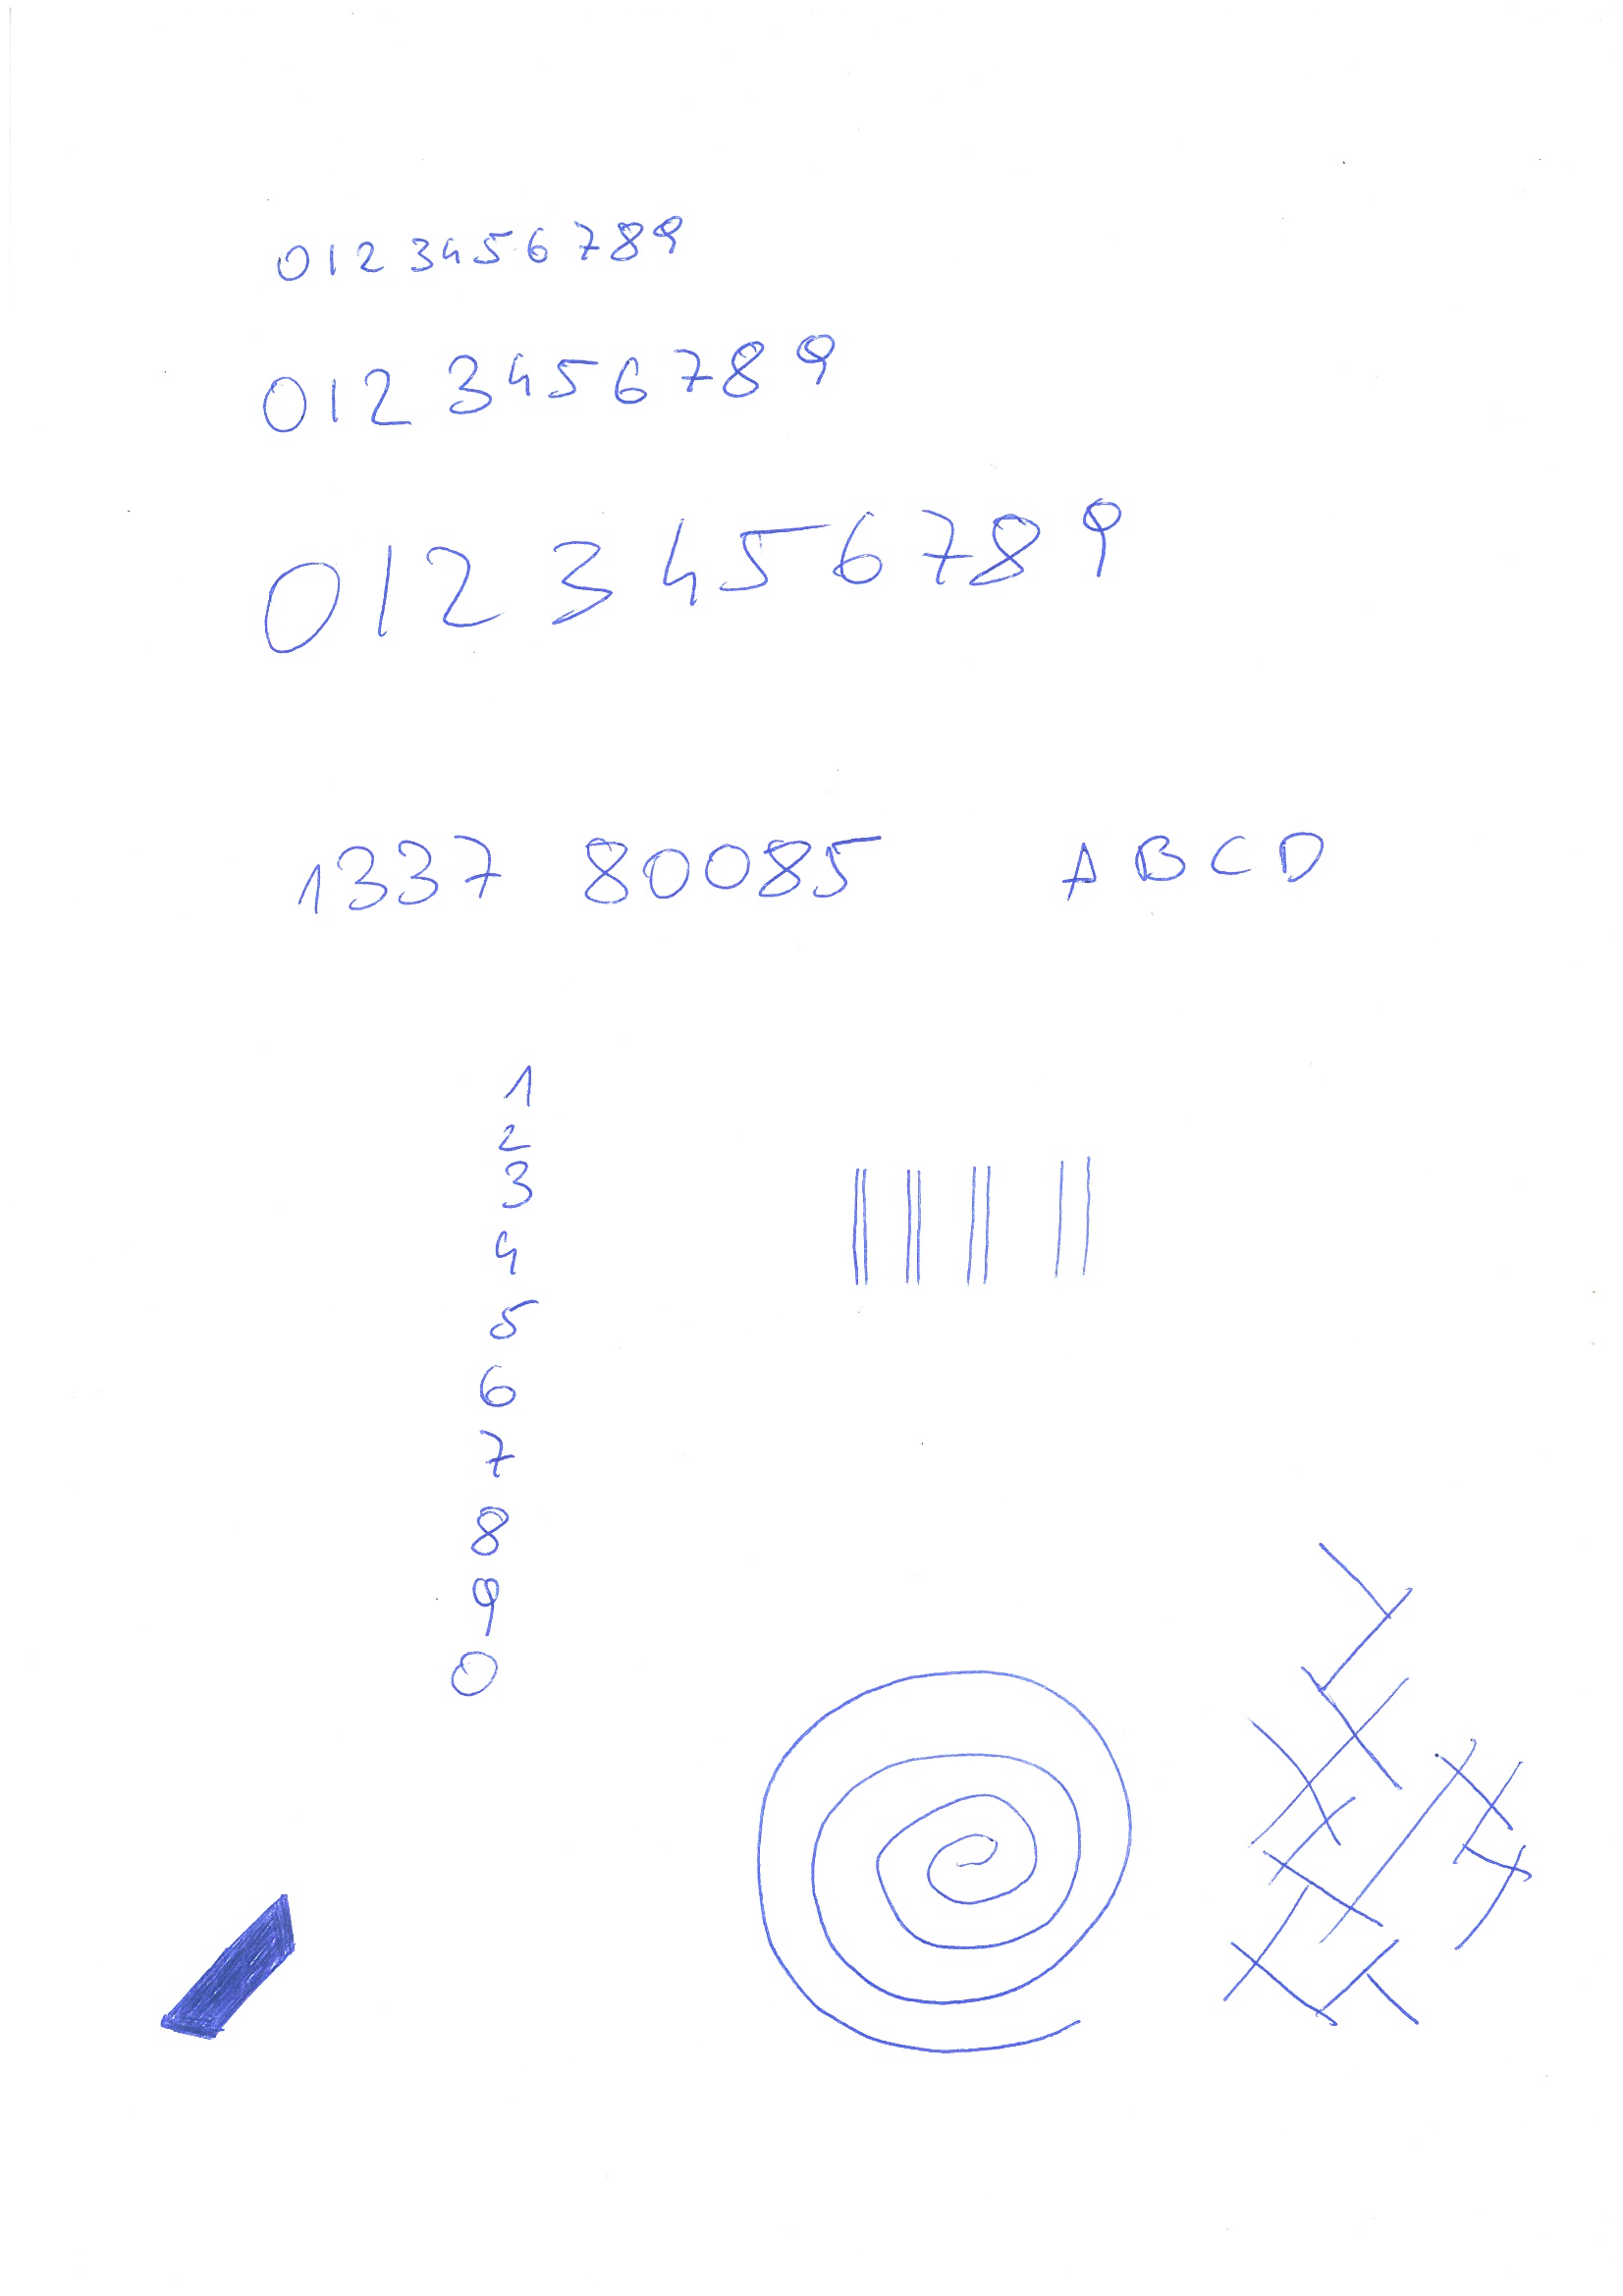 0123456789
0123456789
0123456789
1337 80085 ABCD
1
2
3
4
5
6
7
8
9
0